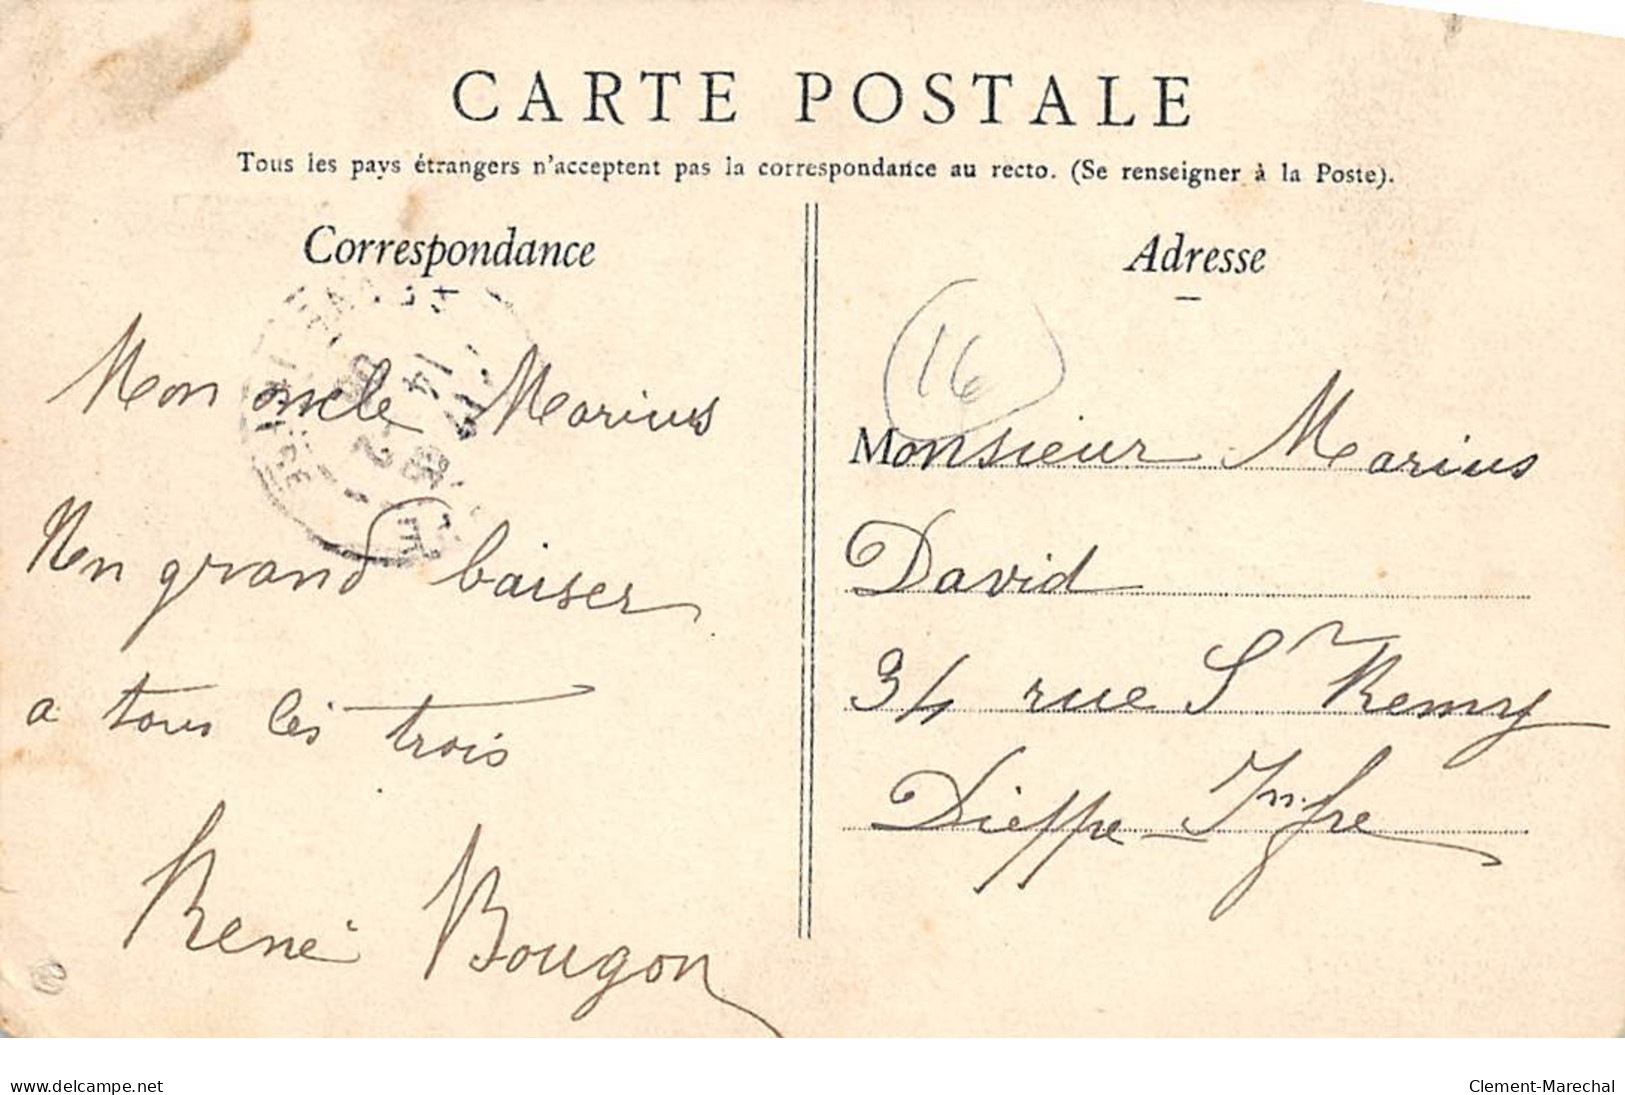 CARTE POSTALE
Tous les pays étrangers n'acceptent pas la correspondance au recto. (Se renseigner à la Poste).
Correspondance
Mon oncle Marius
Un grand baiser
a tous les trois
René Bougon
Adresse
16
Monsieur Marius
David
34 rue St Remy
Dieppe Infre
www.delcampe.net
Clement-Marechal